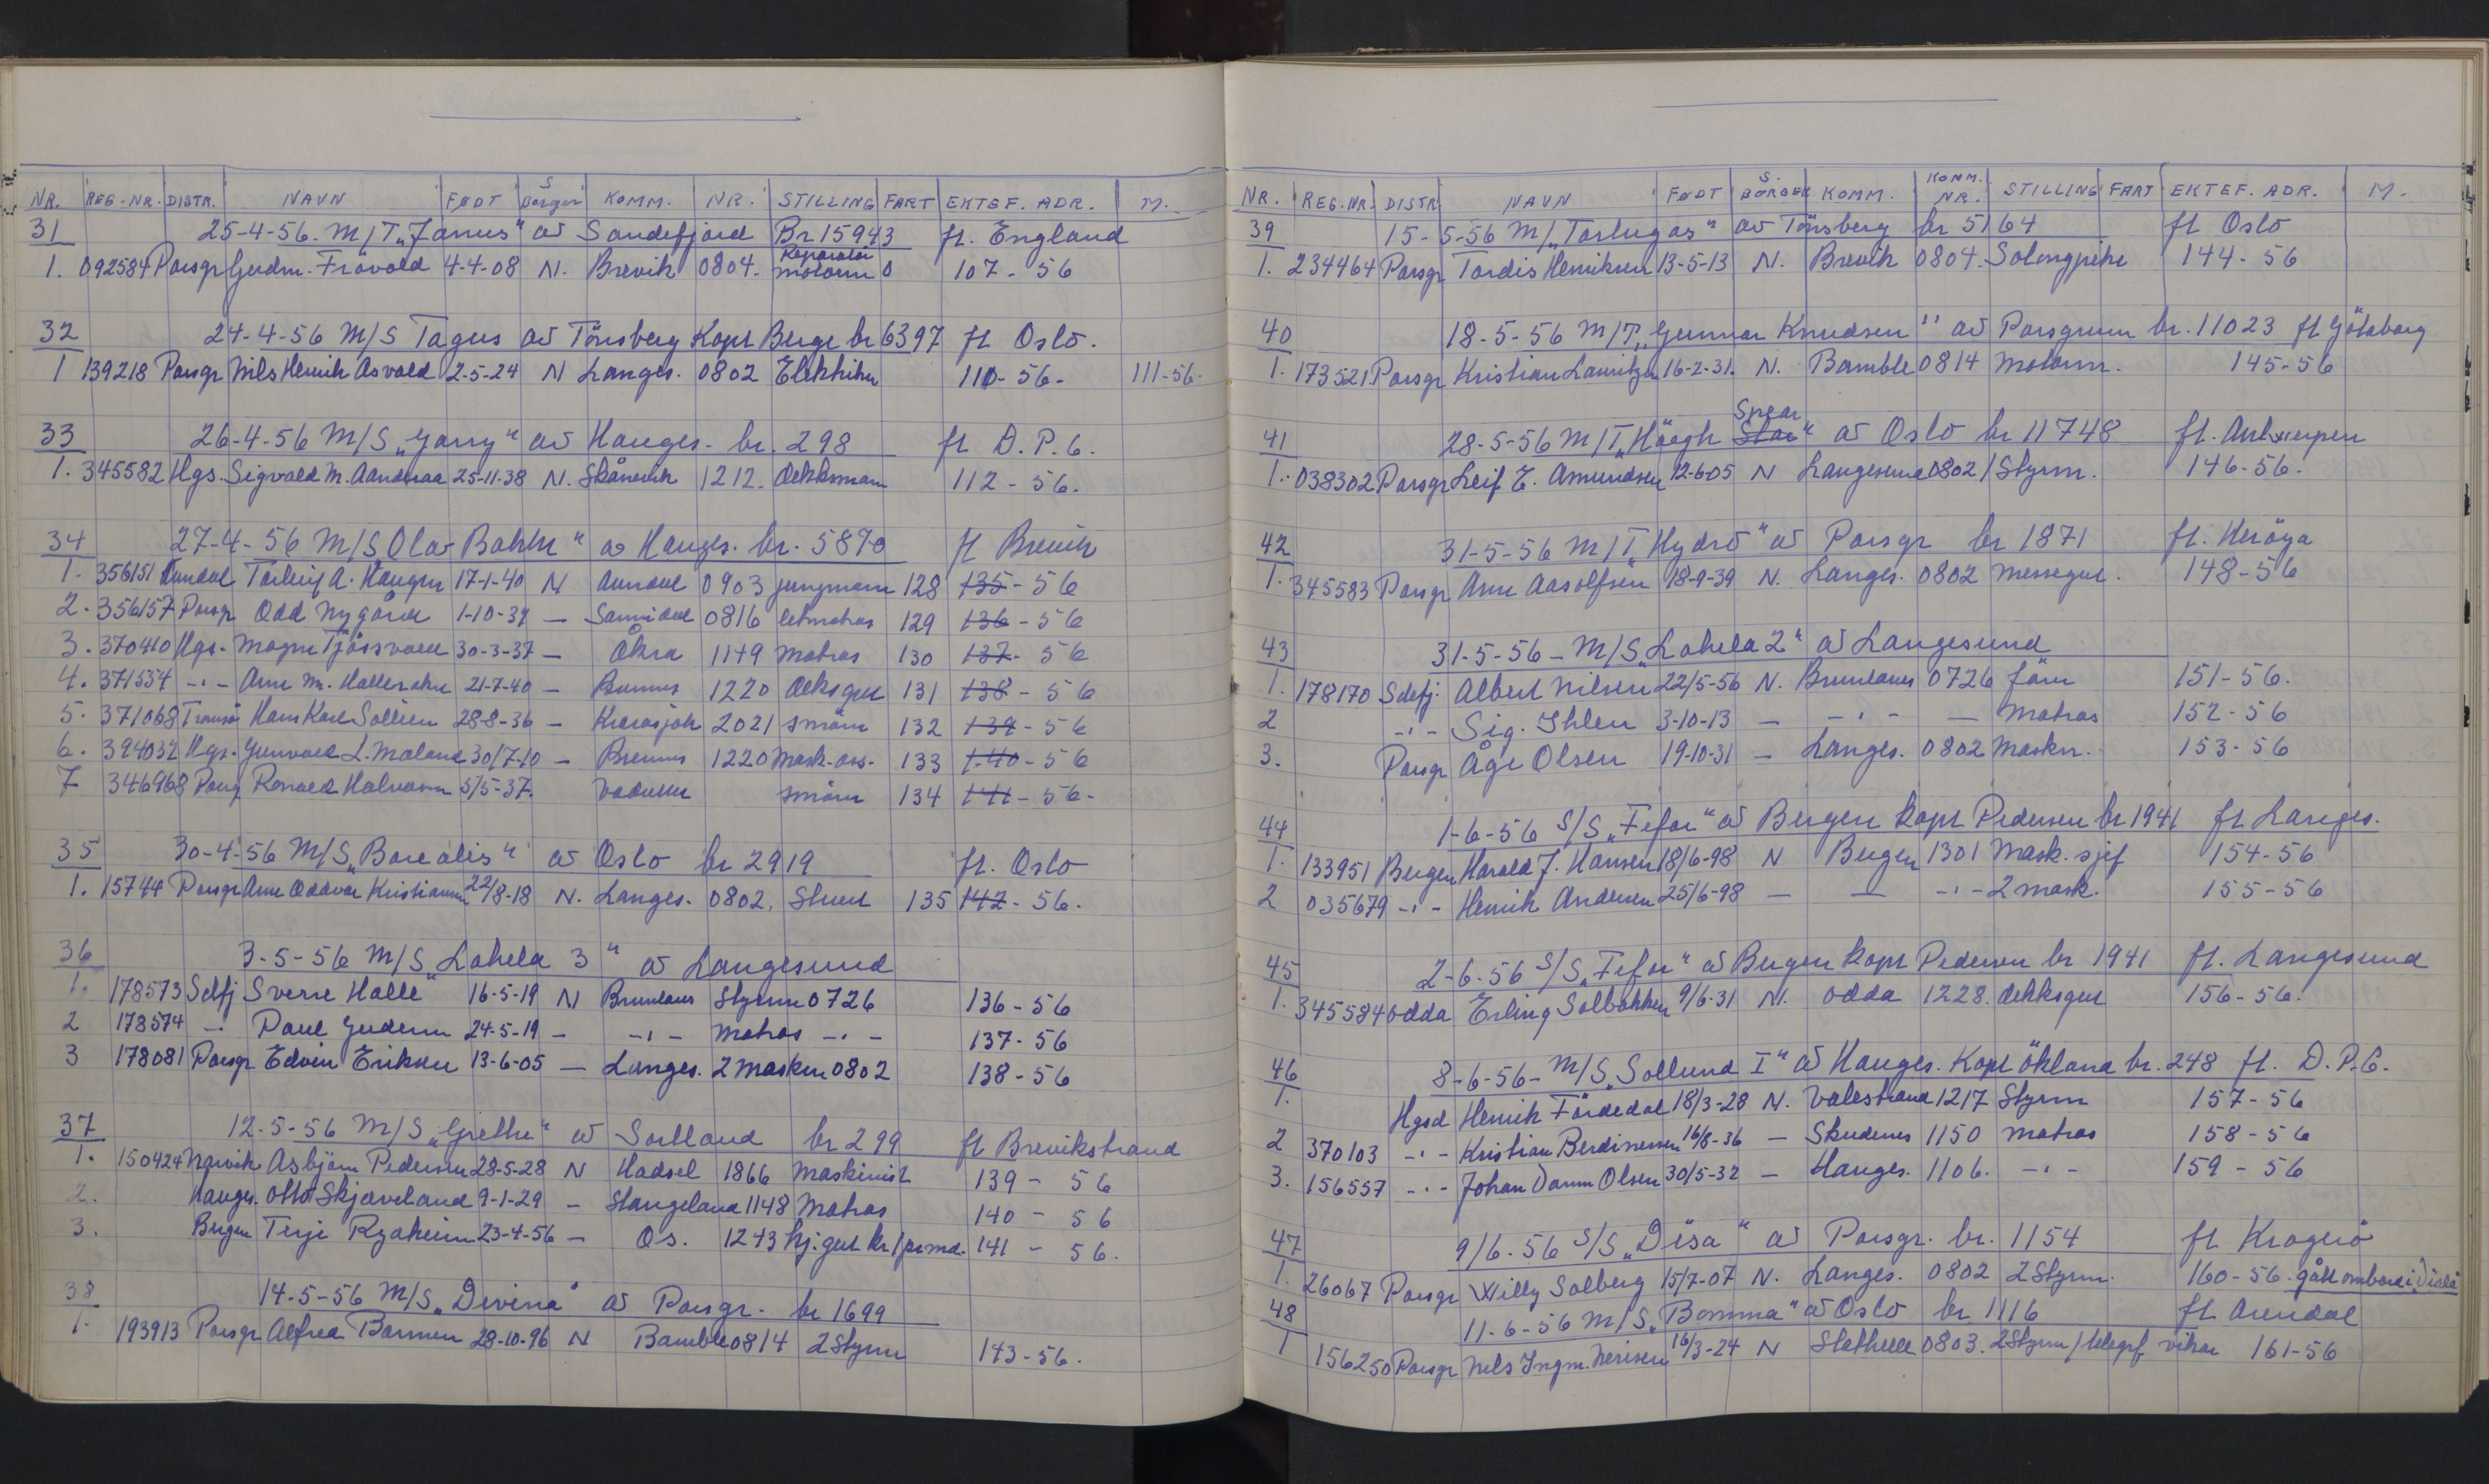 NR. REG-NR. DISTR. NAVN FØDT S Borger KOMM. NR. STILLING FART EKTEF. ADR. M.
31 25-4-56. M/T „Janus" av Sandefjord Br 15943 ft. England
1. 092584 Porsgr Gudm. Frövold 4-4-08 N. Brevik 0804. Reparatör motorm 0 107-56
32 24-4-56 M/S Tagus av Tönsberg Kapt Berge br 6397 ft Oslo.
1 139218 Porsgr Nils Henrik Asvald 2-5-24 N Langes. 0802 Elektriker 110-56- 111-56.
33 26-4-56 M/S „Garry" av Hauges. br. 298 ft D.P.G.
1. 345582 Hgs. Sigvald M. Aandraa 25-11-38 N. Skånevik 1212. dekksmann 112-56.
34 27-4-56 M/S Olav Bakke" av Hauges. br. 5870 ft Brevik
1. 356151 Arendal Torleif A. Haugen 17-1-40 N Arendal 0903 jungmann 128 135-56
2. 356157 Porsgr Odd Nygård 1-10-39 — Sannidal 0816 letmatros 129 136-56
3. 370410 Hgs. Magne Tjösvoll 30-3-37 — Åkra 1149 matros 130 137-56
4. 371554 -"- Arne M. Halleraker 21-7-40 — Bremnes 1220 deksgut 131 138-56
5. 371068 Tromsö Hans Karl Sollien 28-8-36 — Karasjok 2021 smörer 132 139-56
6. 394032 Hgs. Gunvald L. Maland 30/7-10 — Bremnes 1220 Mask.ass. 133 140-56
7 346968 Porsg Ronald Halvorsen 5/5-37. smörer 134 141-56-
35 30-4-56 M/S „Borealis" av Oslo br 2919 ft. Oslo
1. 15744 Porsgr Arne Oddvar Kristiansen 22/8-18 N. Langes. 0802. Stuert 135 142-56.
36 3-5-56 M/S „Lohela 3" av Langesund
1. 178573 Sdfj Sverre Halle 16-5-19 N Brunlanes Styrm 0726 136-56
2 178574 -"- Paul Gudem 24-5-19 — -"- Matros -"- 137-56
3 178081 Porsgr Edvin Eriksen 13-6-05 — Langes. 2 maskm 0802 138-56
37 12-5-56 M/S „Grethe" av Sortland br 299 ft Brevikstrand
1. 150424 Narvik Asbjörn Pedersen 28-5-28 N Hadsel 1866 Maskinist 139-56
2. Hauges. Otto Skjæveland 9-1-29 — Stangeland 1148 Matros 140-56
3. Bergen Terje Rydheim 23-4-56 — Os. 1243 kj.gut kr/pr.md. 141-56.
38 14-5-56 M/S „Divina" av Porsgr. br 1699
1. 193913 Porsgr Alfred Barmen 28-10-96 N Bamble 0814 2 Styrm 143-56.
NR. REG.NR. DISTR NAVN FØDT S. BORGER KOMM. KOMM. NR. STILLING FART EKTEF. ADR. M.
39 15-5-56 M/ „Torlugas" av Tönsberg br 5164 ft Oslo
1. 234464 Porsgr Tordis Henriksen 13-5-13 N. Brevik 0804. Salongpike 144-56
40 18-5-56 M/T „Gunnar Knudsen" av Porsgrunn br. 11023 ft Göteborg
1. 173521 Porsgr Kristian Lauritzen 16-2-31. N. Bamble 0814 motorm. 145-56
41 28-5-56 M/T „Höegh Star Spear" av Oslo br 11748 ft. Antwerpen
1. 038302 Porsgr Leif E. Amundsen 12-6-05 N Langesund 0802 1 Styrm. 146-56.
42 31-5-56 M/T „Hydro" av Porsgr br 1871 ft. Heröya
1. 345583 Porsgr Arne Aasolfsen 18-9-39 N. Langes. 0802 messegut. 148-56
43 31-5-56 - M/S „Lohela 2" av Langesund
1. 178170 Sdefj. Albert Nilsen 22/5-56 N. Brunlanes 0726 förer 151-56.
2 -"- Sig. Ihlen 3-10-13 — -"- — Matros 152-56
3. Porsgr Åge Olsen 19-10-31 — Langes. 0802 Maskm. 153-56
44 1-6-56 S/S „Fefor" av Bergen kapt Pedersen br 1941 ft Langes.
1. 133951 Bergen Harald J. Hansen 18/6-98 N Bergen 1301 Mask.sjef 154-56
2 035679 -"- Henrik Andersen 25/6-98 — — -"- 2 mask. 155-56
45 2-6-56 S/S „Fefor" av Bergen kapt Pedersen br 1941 ft. Langesund
1. 345584 Odda Erling Solbakken 9/6-31 N. Odda 1228. dekksgut 156-56.
46 8-6-56 - M/S „Sollund I" av Hauges. Kapt Ökland br. 248 ft. D.P.G.
1. Hgsd Henrik Fördedal 18/3-28 N. Valestrand 1217 Styrm 157-56
2 370103 -"- Kristian Berdinesen 16/8-36 — Skudenes 1150 matros 158-56
3. 156557 -"- Johan Damm Olsen 30/5-32 — Hauges. 1106. -"- 159-56
47 9/6-56 S/S „Disa" av Porsgr. br. 1154 ft Kragerö
1. 26067 Porsgr Willy Solberg 15/7-07 N. Langes. 0802 2 Styrm. 160-56. gått ombord i
48 11-6-56 M/S „Bomma" av Oslo br 1116 ft Arendal
1 156250 Porsgr Nils Ingm. Nerisen 16/3-24 N Stathelle 0803. 2 Styrm/telegrf vikar 161-56